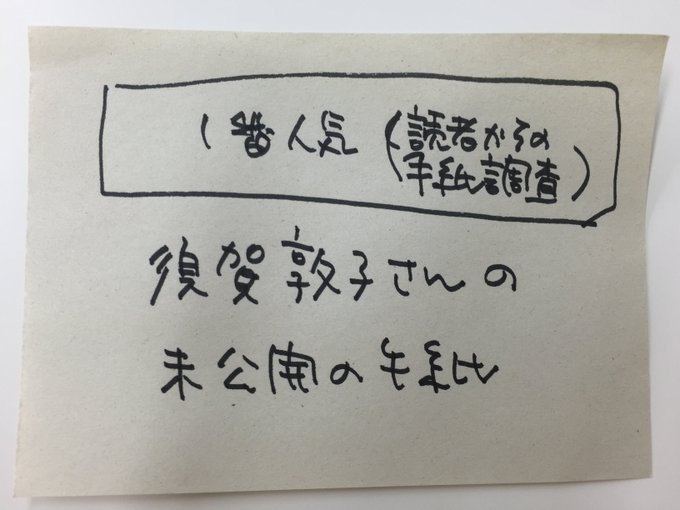 1番人気(読者からの
手紙調査)
須賀敦子さんの
未公開の手紙